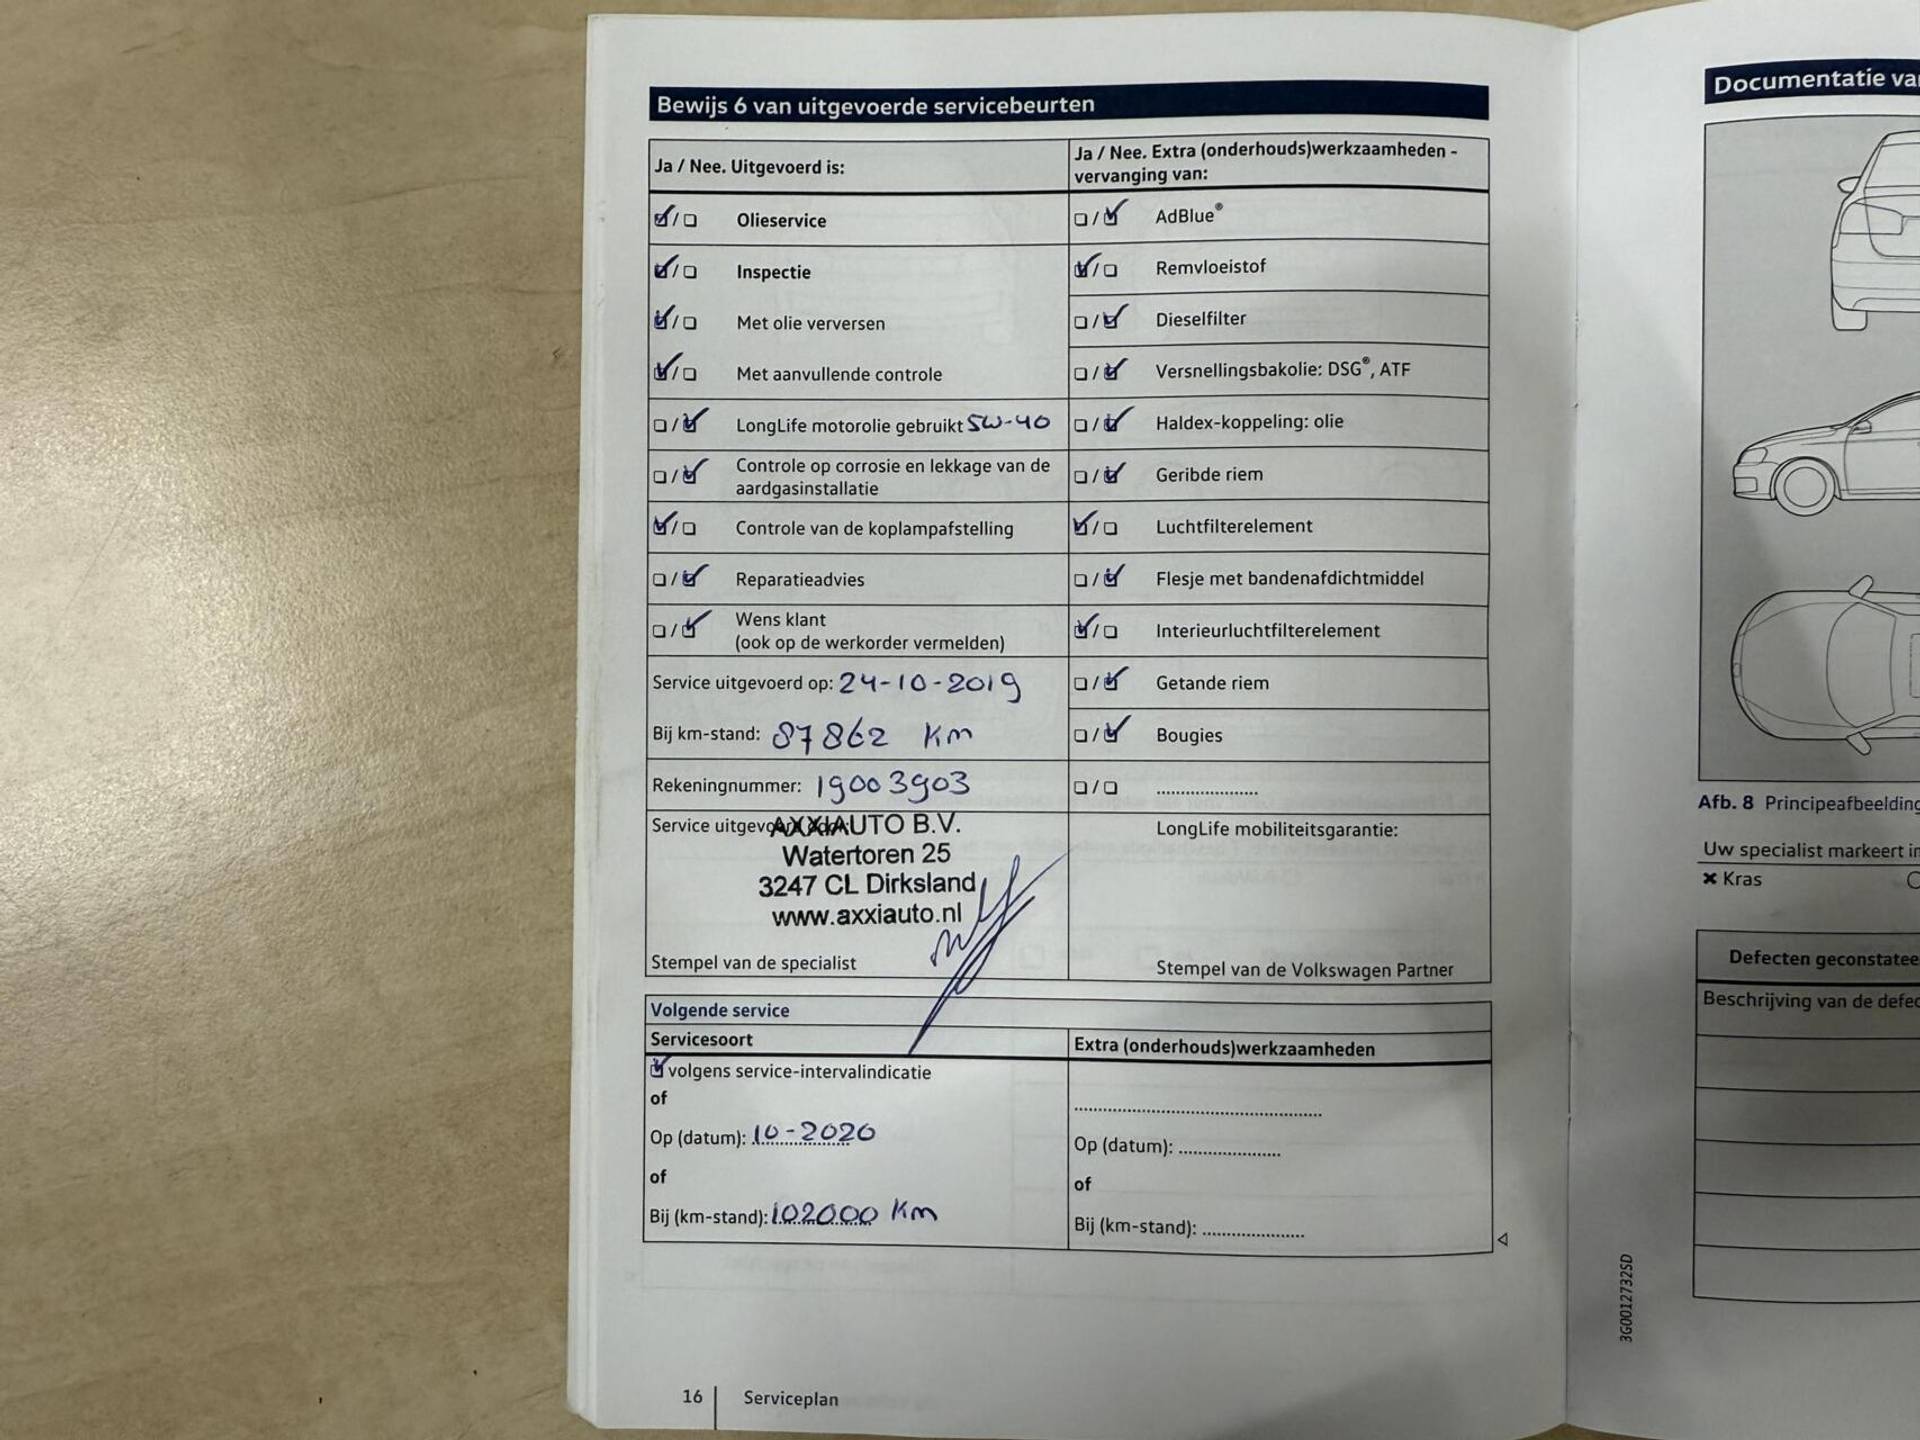 Bewijs 6 van uitgevoerde servicebeurten
Ja / Nee. Uitgevoerd is:
Olieservice
Inspectie
Met olie verversen
Met aanvullende controle
LongLife motorolie gebruikt 5W-40
Controle op corrosie en lekkage van de
aardgasinstallatie
Controle van de koplampafstelling
Reparatieadvies
Wens klant
(ook op de werkorder vermelden)
Service uitgevoerd op: 24-10-2019
Bij km-stand: 87862 Km
Rekeningnummer: 19003903
Service uitgevoerd door:
AXXIAUTO B.V.
Watertoren 25
3247 CL Dirksland
www.axxiauto.nl
Stempel van de specialist
Ja / Nee. Extra (onderhouds)werkzaamheden -
vervanging van:
AdBlue®
Remvloeistof
Dieselfilter
Versnellingsbakolie: DSG®, ATF
Haldex-koppeling: olie
Geribde riem
Luchtfilterelement
Flesje met bandenafdichtmiddel
Interieurluchtfilterelement
Getande riem
Bougies
....................
LongLife mobiliteitsgarantie:
Stempel van de Volkswagen Partner
Volgende service
Servicesoort
volgens service-intervalindicatie
of
Op (datum): 10-2020
of
Bij (km-stand): 102000 Km
Extra (onderhouds)werkzaamheden
Op (datum): ....................
of
Bij (km-stand): ....................
16 Serviceplan
Documentatie va
Afb. 8 Principeafbeelding
Uw specialist markeert i
× Kras
Defecten geconstatee
Beschrijving van de defec
3G0012732SD